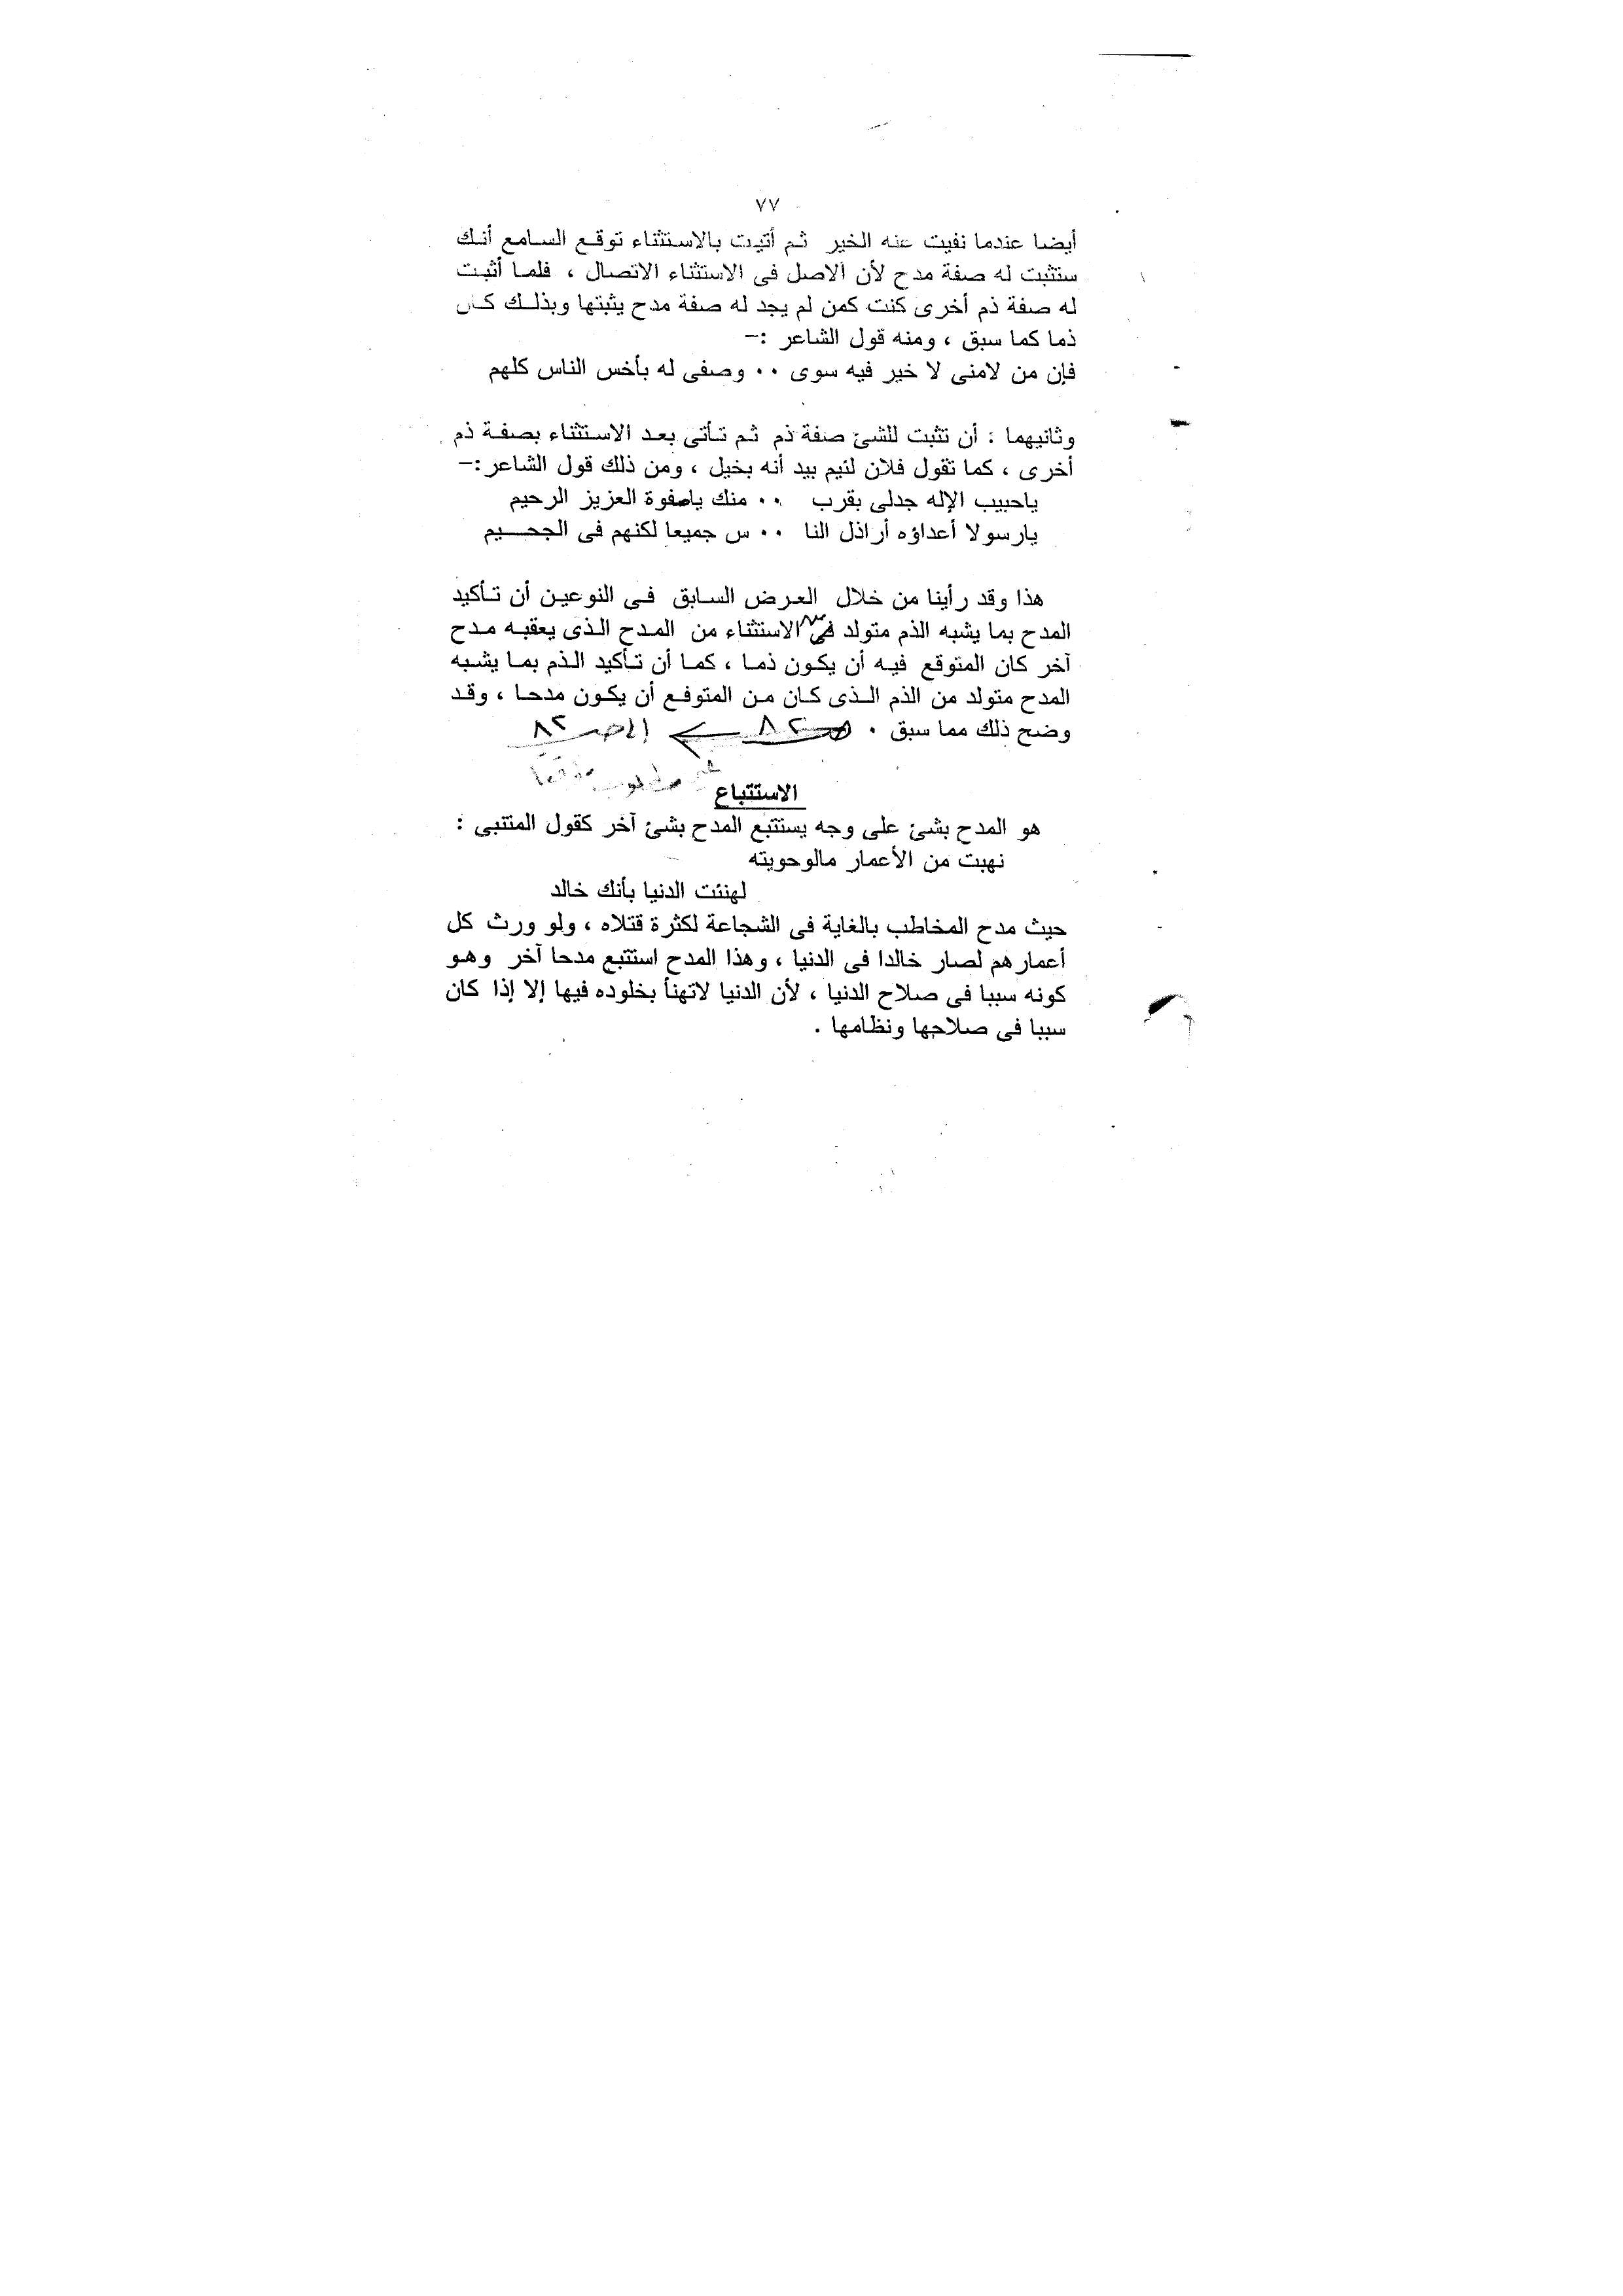 ٧٧
أيضا عندما نفيت عنه الخير ثم أتيت بالاستثناء توقع السامع أنك
ستثبت له صفة مدح لأن الاصل فى الاستثناء الاتصال ، فلما أثبت
له صفة ذم أخرى كنت كمن لم يجد له صفة مدح يثبتها وبذلك كان
ذما كما سبق ، ومنه قول الشاعر :–
فإن من لامنى لا خير فيه سوى ٠٠ وصفى له بأخس الناس كلهم
وثانيهما : أن تثبت للشئ صفة ذم ثم تأتى بعد الاستثناء بصفة ذم
أخرى ، كما تقول فلان لئيم بيد أنه بخيل ، ومن ذلك قول الشاعر :–
ياحبيب الإله جدلى بقرب ٠٠ منك ياصفوة العزيز الرحيم
يارسولا أعداؤه أراذل النا ٠٠ س جميعا لكنهم فى الجحيم
هذا وقد رأينا من خلال العرض السابق فى النوعين أن تأكيد
المدح بما يشبه الذم متولد الاستثناء من المدح الذى يعقبه مدح
آخر كان المتوقع فيه أن يكون ذما ، كما أن تأكيد الذم بما يشبه
المدح متولد من الذم الذى كان من المتوفع أن يكون مدحا ، وقد
وضح ذلك مما سبق . صـ ٨٢ ← إلى صـ ٨٣
الاستتباع
هو المدح بشئ على وجه يستتبع المدح بشئ آخر كقول المتنبى :
نهبت من الأعمار مالوحويته
لهنئت الدنيا بأنك خالد
حيث مدح المخاطب بالغاية فى الشجاعة لكثرة قتلاه ، ولو ورث كل
أعمارهم لصار خالدا فى الدنيا ، وهذا المدح استتبع مدحا آخر وهو
كونه سببا فى صلاح الدنيا ، لأن الدنيا لاتهنأ بخلوده فيها إلا إذا كان
سببا فى صلاحها ونظامها .